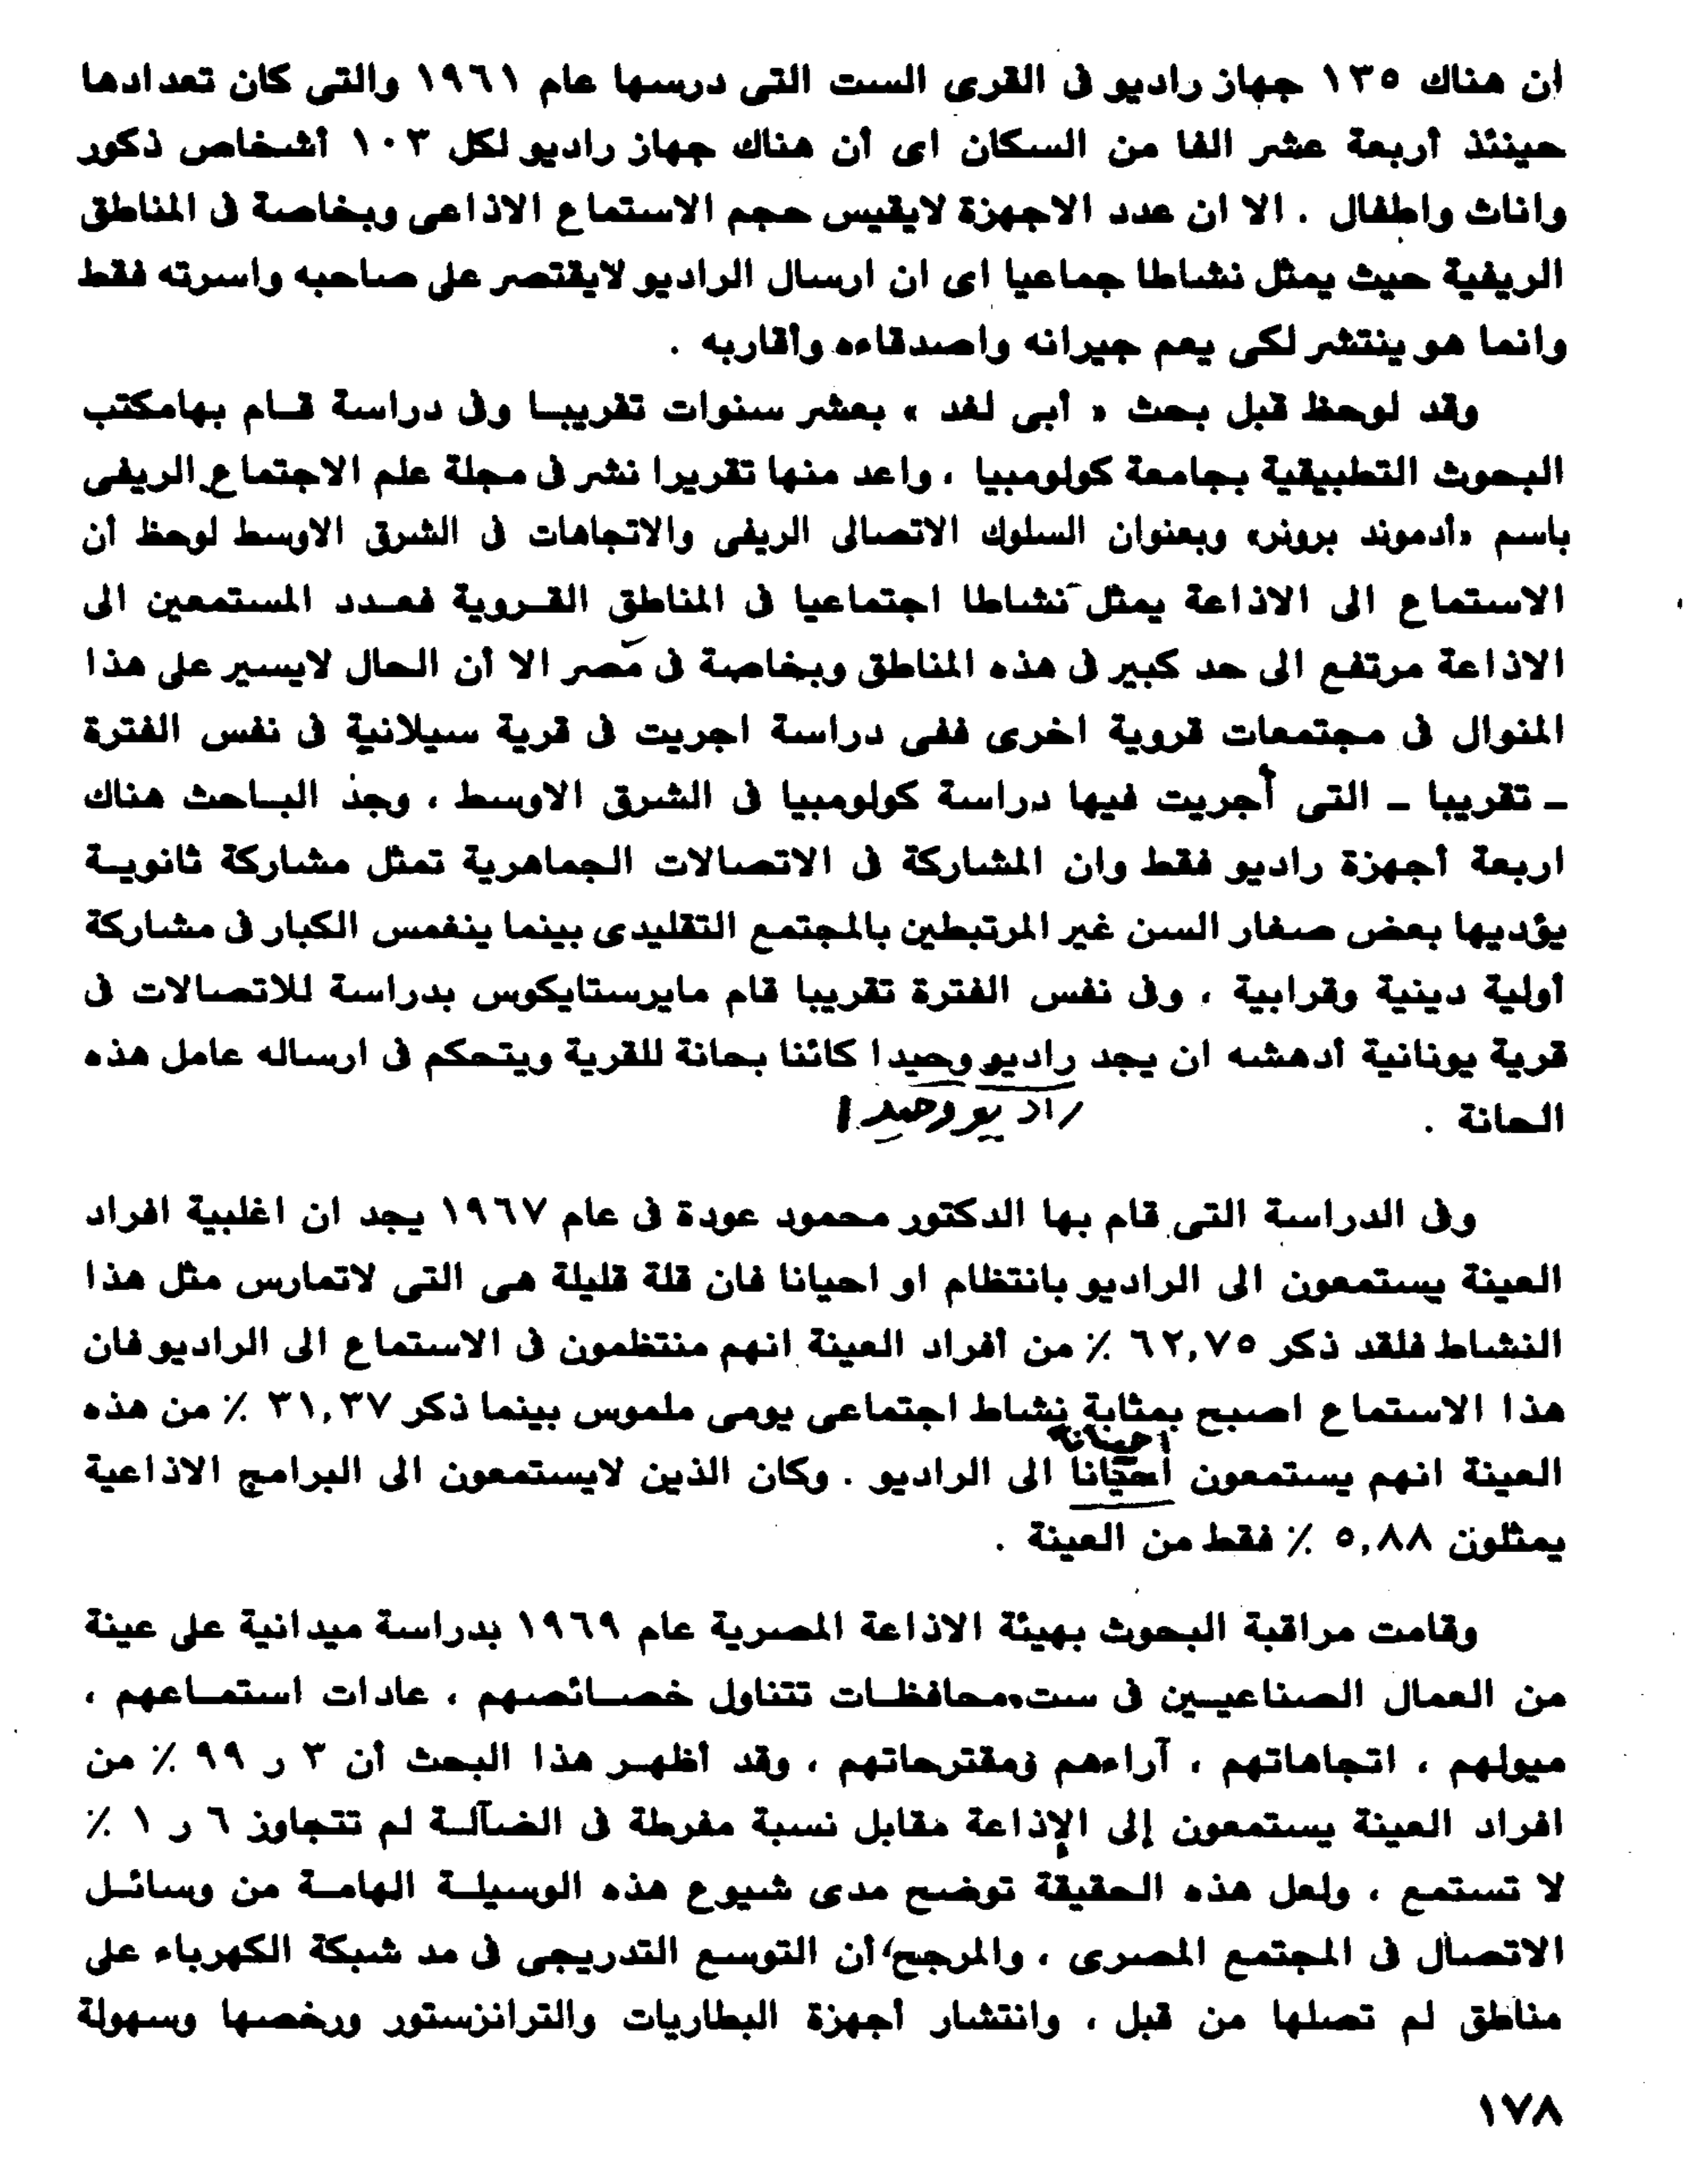 أن هناك ١٣٥ جهاز راديو فى القرى الست التى درسها عام ١٩٦١ والتى كان تعدادها
حينئذ أربعة عشر الفا من السكان اى أن هناك جهاز راديو لكل ١٠٣ أشخاص ذكور
واناث واطفال . الا ان عدد الاجهزة لايقيس حجم الاستماع الاذاعى وبخاصة فى المناطق
الريفية حيث يمثل نشاطا جماعيا اى ان ارسال الراديو لايقتصر على صاحبه واسرته فقط
وانما هو ينتشر لكى يعم جيرانه واصدقاءه وأقاربه .
وقد لوحظ قبل بحث « أبى لغد » بعشر سنوات تقريبا وفى دراسة قام بهامكتب
البحوث التطبيقية بجامعة كولومبيا ، واعد منها تقريرا نشر فى مجلة علم الاجتماع الريفى
باسم «أدموند برونر» وبعنوان السلوك الاتصالى الريفى والاتجاهات فى الشرق الاوسط لوحظ أن
الاستماع الى الاذاعة يمثل نشاطا اجتماعيا فى المناطق القروية فعدد المستمعين الى
الاذاعة مرتفع الى حد كبير فى هذه المناطق وبخاصة فى مصر الا أن الحال لايسير على هذا
المنوال فى مجتمعات قروية اخرى ففى دراسة اجريت فى قرية سيلانية فى نفس الفترة
ـ تقريبا ـ التى أجريت فيها دراسة كولومبيا فى الشرق الاوسط ، وجد الباحث هناك
اربعة أجهزة راديو فقط وان المشاركة فى الاتصالات الجماهرية تمثل مشاركة ثانوية
يؤديها بعض صغار السن غير المرتبطين بالمجتمع التقليدى بينما ينغمس الكبار فى مشاركة
أولية دينية وقرابية ، وفى نفس الفترة تقريبا قام مايرستايكوس بدراسة للاتصالات فى
قرية يونانية أدهشه ان يجد راديو وحيدا كائنا بحانة للقرية ويتحكم فى ارساله عامل هذه
الحانة . راديو وحيدا
وفى الدراسة التى قام بها الدكتور محمود عودة فى عام ١٩٦٧ يجد ان اغلبية افراد
العينة يستمعون الى الراديو بانتظام او احيانا فان قلة قليلة هى التى لاتمارس مثل هذا
النشاط فلقد ذكر ٦٢,٧٥ ٪ من أفراد العينة انهم منتظمون فى الاستماع الى الراديو فان
هذا الاستماع اصبح بمثابة نشاط اجتماعى يومى ملموس بينما ذكر ٣١,٣٧ ٪ من هذه
احيانا
العينة انهم يستمعون احيانا الى الراديو . وكان الذين لايستمعون الى البرامج الاذاعية
يمثلون ٥,٨٨ ٪ فقط من العينة .
وقامت مراقبة البحوث بهيئة الاذاعة المصرية عام ١٩٦٩ بدراسة ميدانية على عينة
من العمال الصناعيين فى ست محافظات تتناول خصائصهم ، عادات استماعهم ،
ميولهم ، اتجاهاتهم ، آراءهم ومقترحاتهم ، وقد أظهر هذا البحث أن ٣ ر ٩٩ ٪ من
افراد العينة يستمعون إلى الإذاعة مقابل نسبة مفرطة فى الضآلة لم تتجاوز ٦ ر ١ ٪
لا تستمع ، ولعل هذه الحقيقة توضح مدى شيوع هذه الوسيلة الهامة من وسائل
الاتصال فى المجتمع المصرى ، والمرجح أن التوسع التدريجى فى مد شبكة الكهرباء على
مناطق لم تصلها من قبل ، وانتشار أجهزة البطاريات والترانزستور ورخصها وسهولة
١٧٨